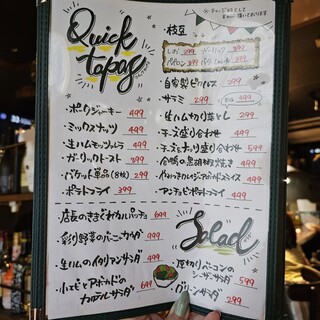 Quick
tapas
・ポークジャーキー 499
・ミックスナッツ 499
・生ハムモッツァレラ 499
・ガーリックトースト 299
・バゲット単品(8枚) 299
・ポテトフライ 399
・枝豆
しお 299 ガーリック 399
ペペロン 399
・自家製ピクルス 299
・サラミ 299 499
・生ハム切り落とし 299
・チーズ盛り合わせ 499
・チーズとナッツ盛り合わせ 599
・合鴨の黒胡椒焼き 499
499
・アンチョビポテトフライ 499
・店長のきまぐれカルパッチョ 699
・彩り野菜のバーニャカウダ 499
・生ハムのイタリアンサラダ 499
・小エビとアボカドのカクテルサラダ 699
Salad
・厚切りベーコンの
シーザーサラダ 599
・グリーンサラダ 299